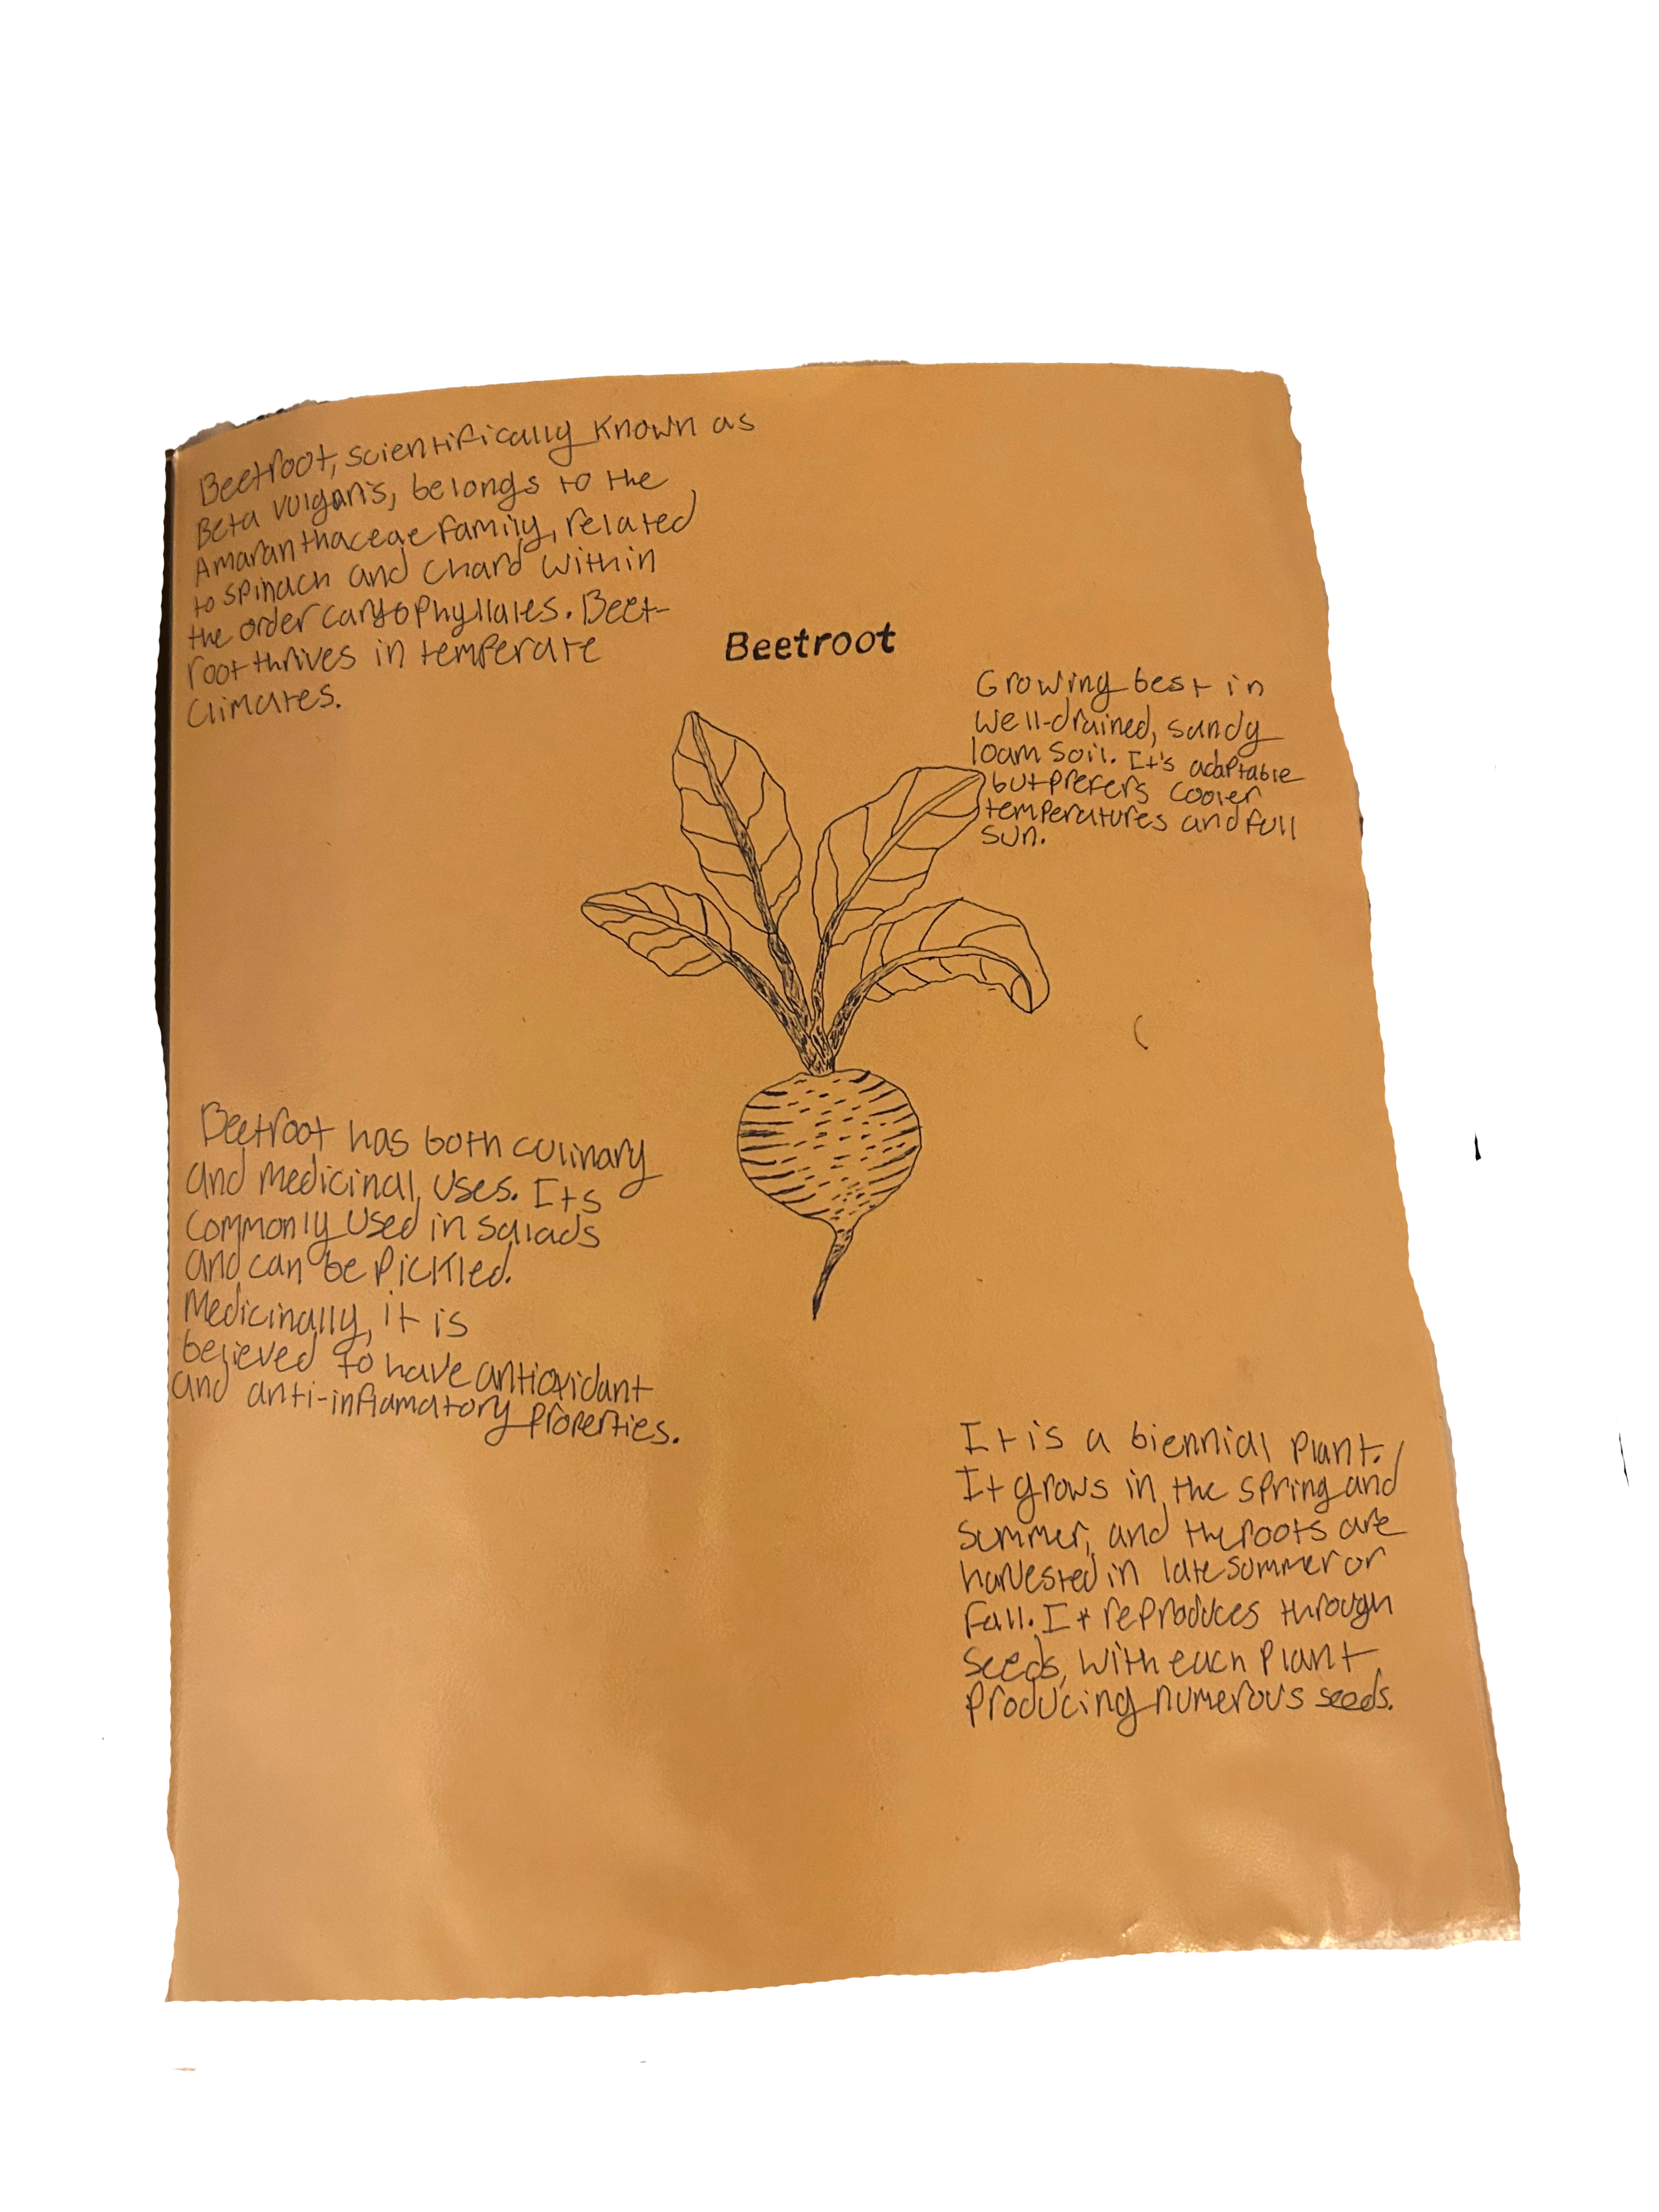 Beetroot, scientifically known as
Beta vulgaris, belongs to the
Amaranthaceae family, related
to spinach and chard within
the order caryophyllales. Beet-
root thrives in temperate
climates.
Beetroot
Growing best in
well-drained, sandy
loam soil. It's adaptable
but prefers cooler
temperatures and full
sun.
Beetroot has both culinary
and medicinal uses. Its
commonly used in salads
and can be pickled.
Medicinally, it is
believed to have antioxidant
and anti-inflamatory properties.
It is a biennial plant.
It grows in the spring and
summer, and the roots are
harvested in late summer or
fall. It reproduces through
seeds, with each plant
producing numerous seeds.